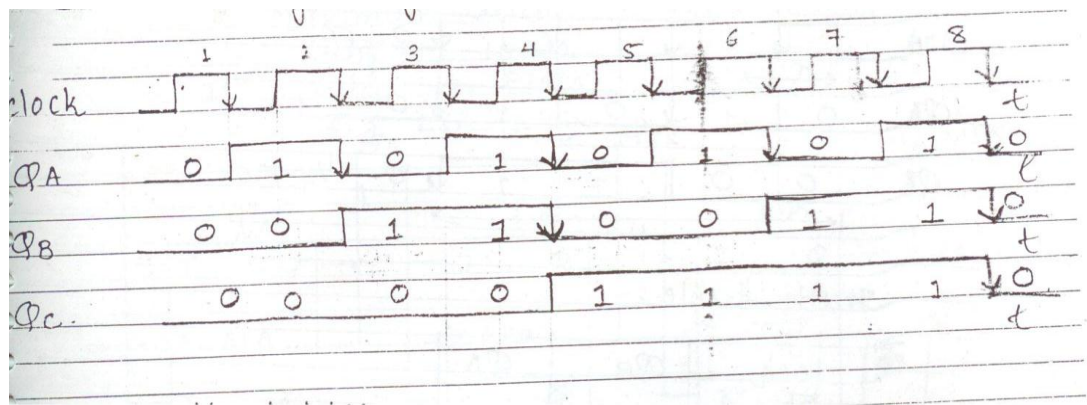 1 2 3 4 5 6 7 8
clock t
QA 0 1 0 1 0 1 0 1 0
t
QB 0 0 1 1 0 0 1 1 0
t
Qc. 0 0 0 0 1 1 1 1 0
t